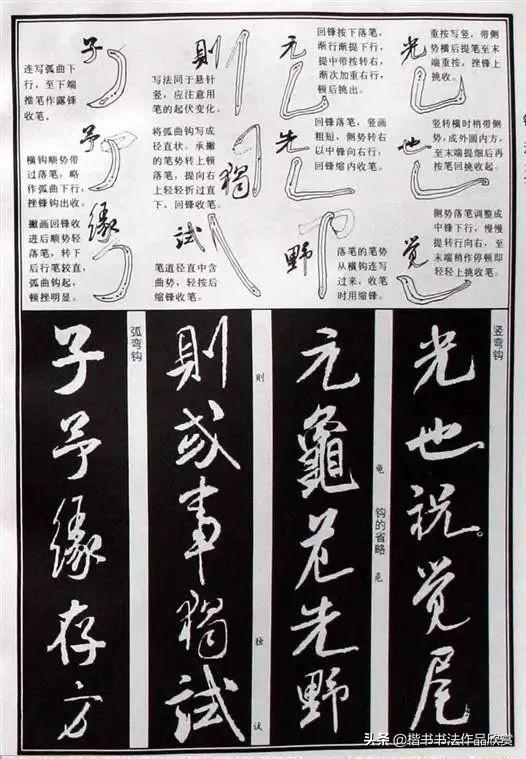 光
重按写竖，带侧
势横后提笔至末
端重按，挫锋上
挑收。
也
竖转横时稍带侧
势，成外圆内方，
至末端提细后再
按笔回挑收起。
觉
侧势落笔调整成
中锋下行，慢慢
提转行向右，至
末端稍作停顿即
轻轻上挑收笔。
元
回锋按下落笔，
渐行渐提下行，
提中带按转右，
渐次加重右行，
顿后挑出。
先
回锋落笔，竖画
粗短，侧势转右
以中锋向右行，
回锋缩内收笔。
野
落笔的笔势
从横钩连写
过来，收笔
时用缩锋。
則
写法同于悬针
竖，应注意用
笔的起伏变化。
獨
将弧曲钩写成
径直状。承撇
的笔势转上顿
落笔，提向右
上轻轻折过直
下，回锋收笔。
試
笔道径直中含
曲势，轻按后
缩锋收笔。
子
连写弧曲下
行，至下端
推笔作露锋
收笔。
予
横钩顺势带
过落笔，略
作弧曲下行，
挫锋钩出收。
緣
撇画回锋收
进后顺势轻
落笔，转下
后行笔较直，
弧曲钩起，
顿挫明显。
竖弯钩
光也说觉尾
钩的省略
元龜花先野
龟
則或事獨試
则
独
试
弧弯钩
子予緣存方
头条@楷书书法作品欣赏